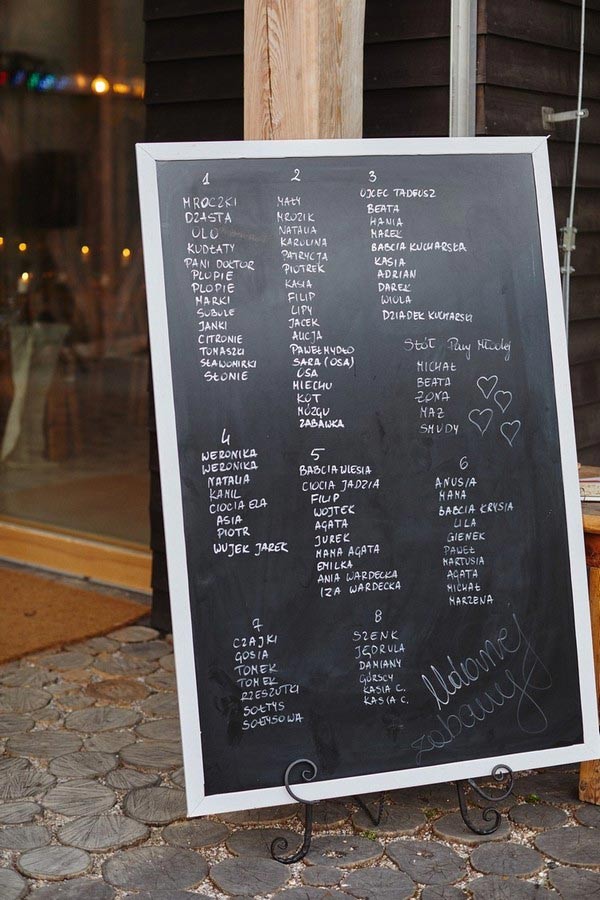 1
MROCZKI
DŻASTA
ULU
KUDŁATY
PANI DOKTOR
PLUPIE
PLUPIE
MARKI
SUBULE
JANKI
CITRONIE
TOMASZKI
SŁAWOMIRKI
SŁONIE
2
MAŁY
MROZIK
NATALIA
KAROLINA
PATRYCJA
PIOTREK
KASIA
FILIP
LIPY
JACEK
ALICJA
PAWEŁ MYDŁO
SARA (OSA)
OSA
MIECHU
KOT
MÓZGU
ZABAWKA
3
OJCEC TADEUSZ
BEATA
HANIA
MAREK
BABCIA KUCHARSKA
KASIA
ADRIAN
DAREK
WIOLA
DZIADEK KUCHARSKI
Stół Pary Młodej
MICHAŁ
BEATA
ŻONA
MĄŻ
SMUDY
4
WERONIKA
WERONIKA
NATALIA
KAMIL
CIOCIA ELA
ASIA
PIOTR
WUJEK JAREK
5
BABCIA WIESIA
CIOCIA JADZIA
FILIP
WOJTEK
AGATA
JUREK
MAMA AGATA
EMILKA
ANIA WARDECKA
IZA WARDECKA
6
ANUSIA
MAMA
BABCIA KRYSIA
LILA
GIENEK
PAWEŁ
MARTUSIA
AGATA
MICHAŁ
MARZENA
7
CZAJKI
GOSIA
TOMEK
TOMEK
RZESZUTKI
SOŁTYS
SOŁTYSOWA
8
SZENK
JĘDRULA
DAMIANY
GÓRSCY
KASIA C.
KASIA C.
Udanej
zabawy